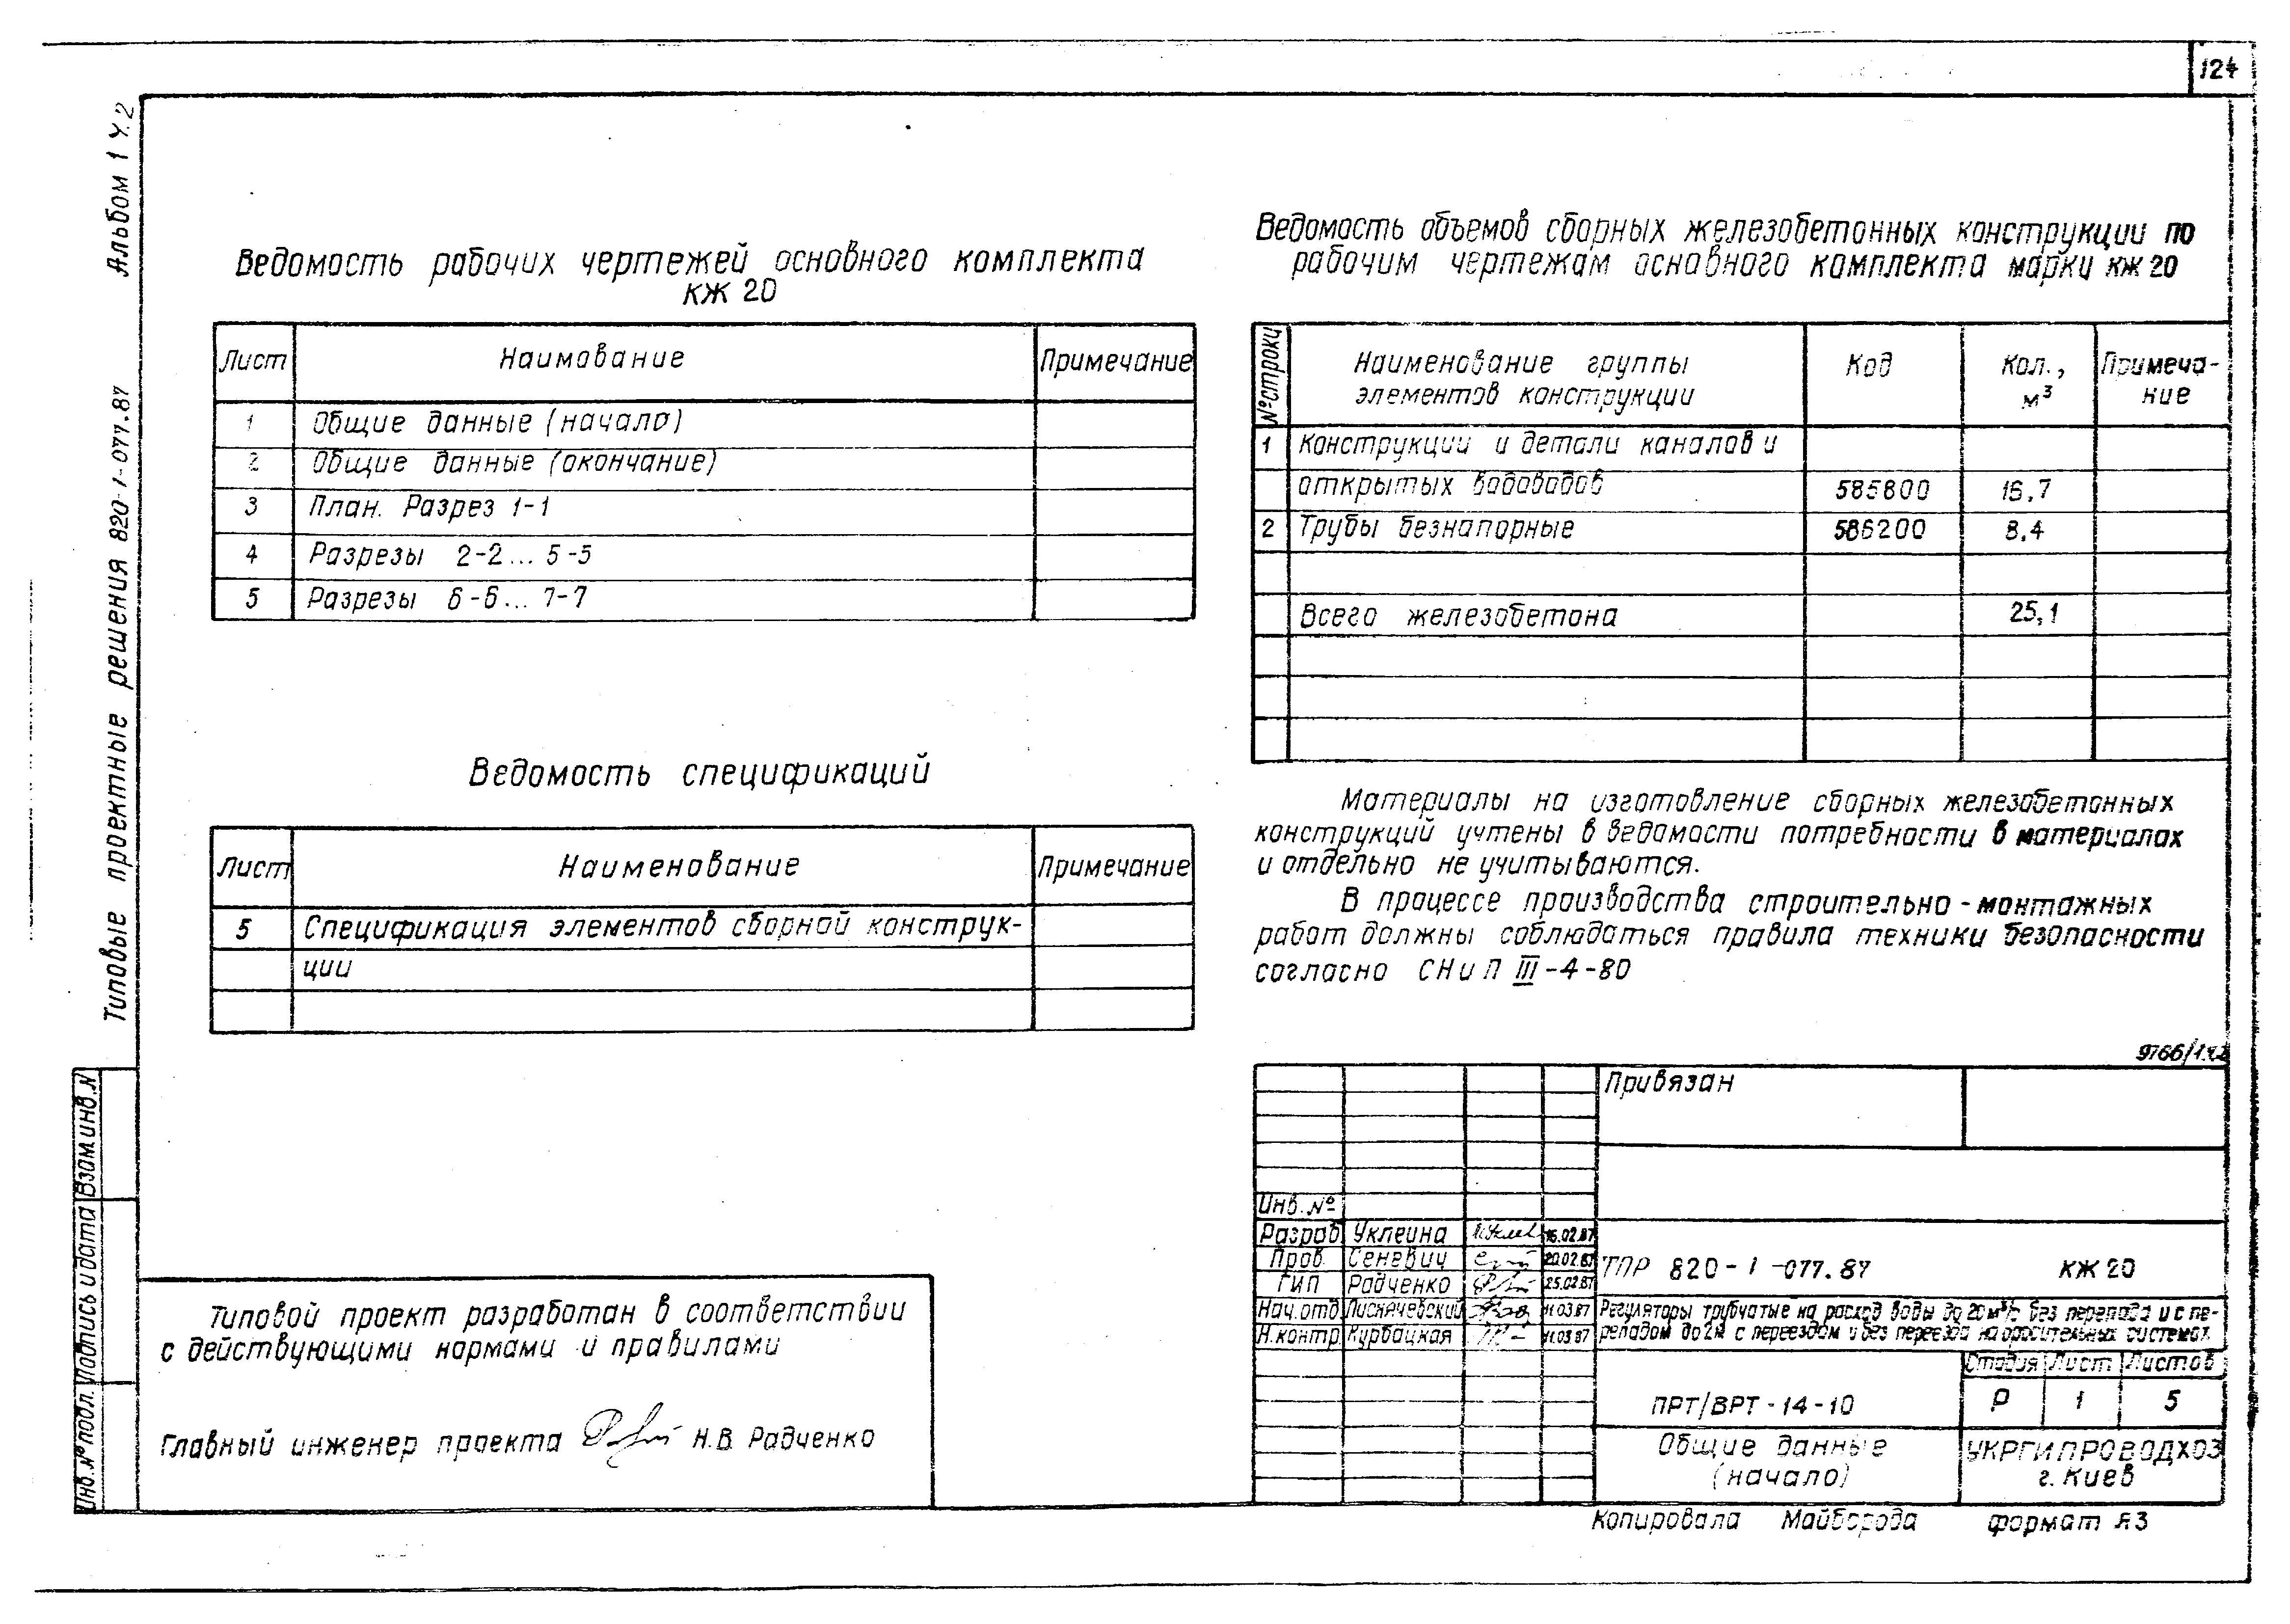 124
Альбом 1 Ч.2
Типовые проектные решения 820-1-077.87
Ведомость рабочих чертежей основного комплекта
КЖ 20
Лист Наимование Примечание
1 Общие данные (начало)
2 Общие данные (окончание)
3 План. Разрез 1-1
4 Разрезы 2-2... 5-5
5 Разрезы 6-6... 7-7
Ведомость спецификаций
Лист Наименование Примечание
5 Спецификация элементов сборной конструк-
ции
Ведомость объемов сборных железобетонных конструкции по
рабочим чертежам основного комплекта марки КЖ 20
№ строки Наименование группы элементов конструкции Код Кол., м³ Примеча-ние
1 Конструкции и детали каналов и
открытых водоводов 585800 16,7
2 Трубы безнапорные 586200 8.4
Всего железобетона 25,1
Материалы на изготовление сборных железобетонных
конструкций учтены в ведомости потребности в материалах
и отдельно не учитываются.
В процессе производства строительно-монтажных
работ должны соблюдаться правила техники безопасности
согласно СНиП III-4-80
9766/1ч.2
Привязан
Инв. №
Разраб Уклеина 16.02.87
Пров. Сеневич 20.02.87
ГИП Радченко 25.02.87
Нач.отд Лиснячевский 11.03.87
Н.контр Курбацкая 11.03.87
ТПР 820-1-077.87 КЖ 20
Регуляторы трубчатые на расход воды до 20 м³/с без перепада и с пе-
репадом до 2м с переездом и без переезда на оросительных системах
Стадия Лист Листов
ПРТ/ВРТ-14-10 Р 1 5
Общие данные
(начало)
УКРГИПРОВОДХОЗ
г. Киев
Копировала Майборода формат А3
Типовой проект разработан в соответствии
с действующими нормами и правилами
Главный инженер проекта Н.В. Радченко
Взам.инв.N
Подпись и дата
Инв.№ подл.